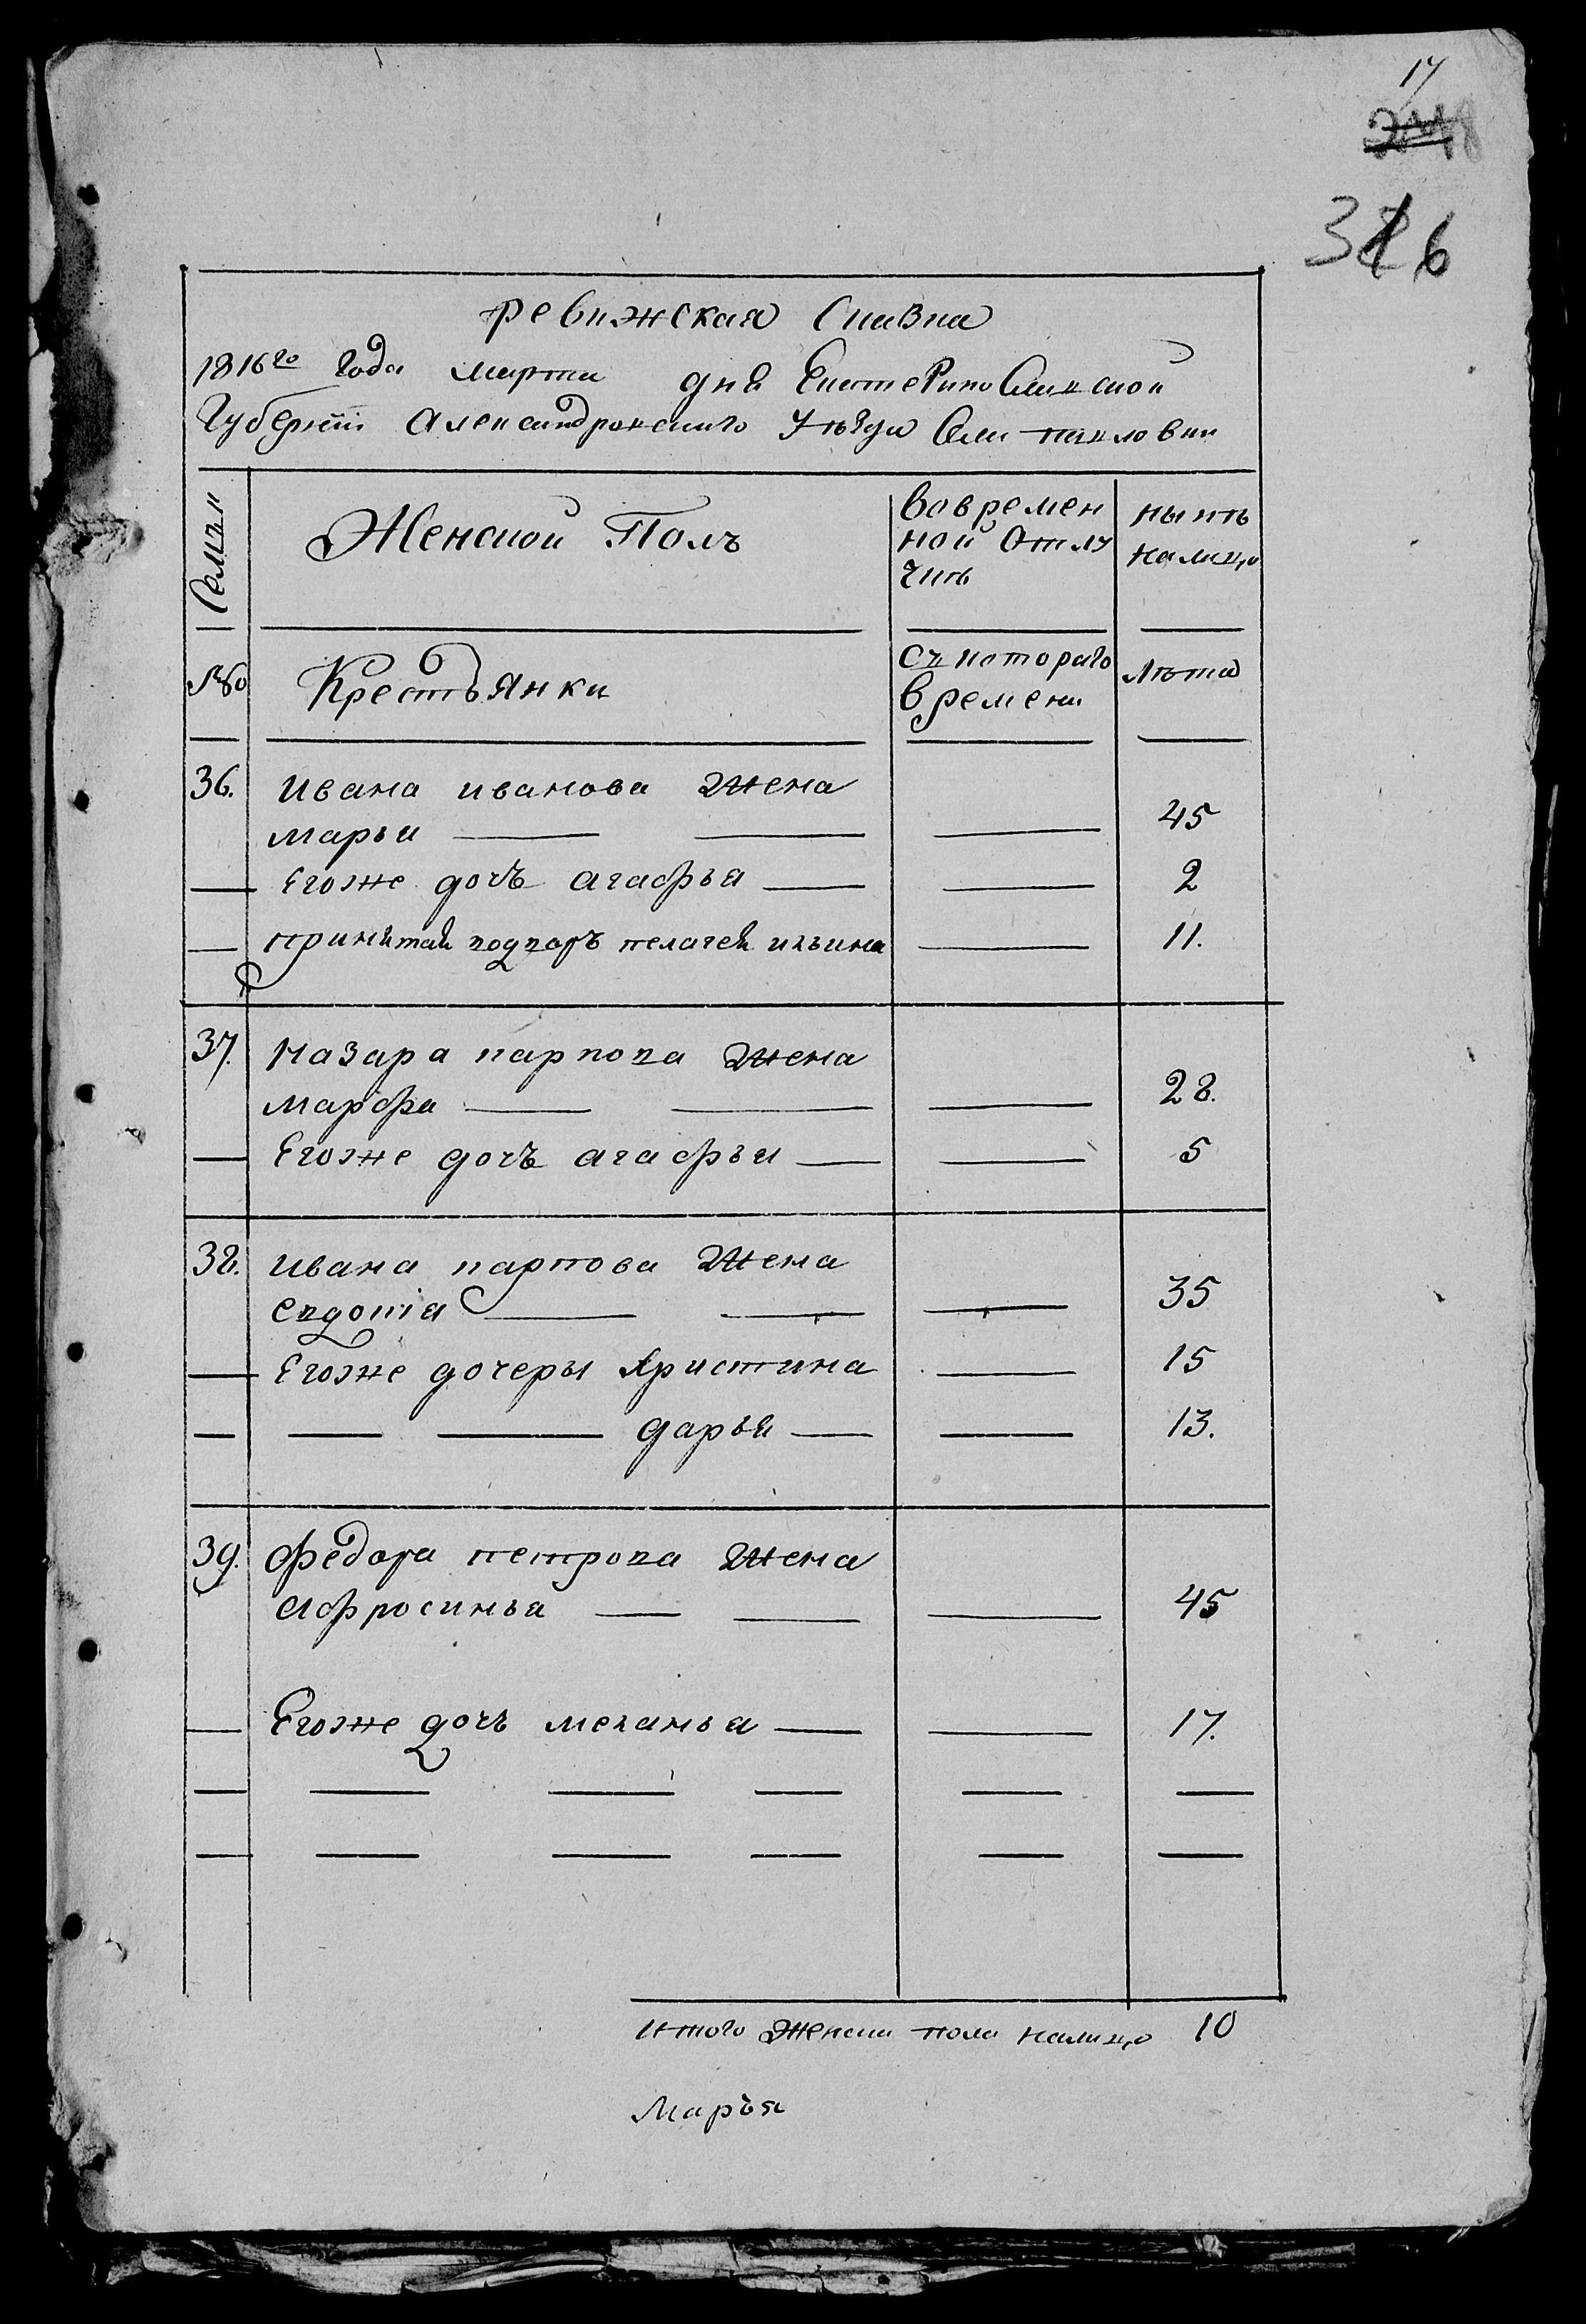 17
326
ревижская Сказка
1816го года марта дня Екатеринославской
Губернiи Александровскаго Уѣзда Села павловки
Семьи
Женской Полъ
вовремен
ной Отлу
чкѣ
нынѣ
налицо
№
Крестьянки
съ котораго
времени
лѣта
36. Ивана иванова жена
марья 45
Егоже дочь агафья 2
принятая 11.
37. Назара карпова жена
марфа 28.
Егоже дочь агафья 5
38. Ивана карпова жена
евдокiя 35
Егоже дочеры христина 15
дарья 13.
39. Федора петрова жена
Афросинья 45
Егоже дочь меланья 17.
итого женска пола налицо 10
Марья